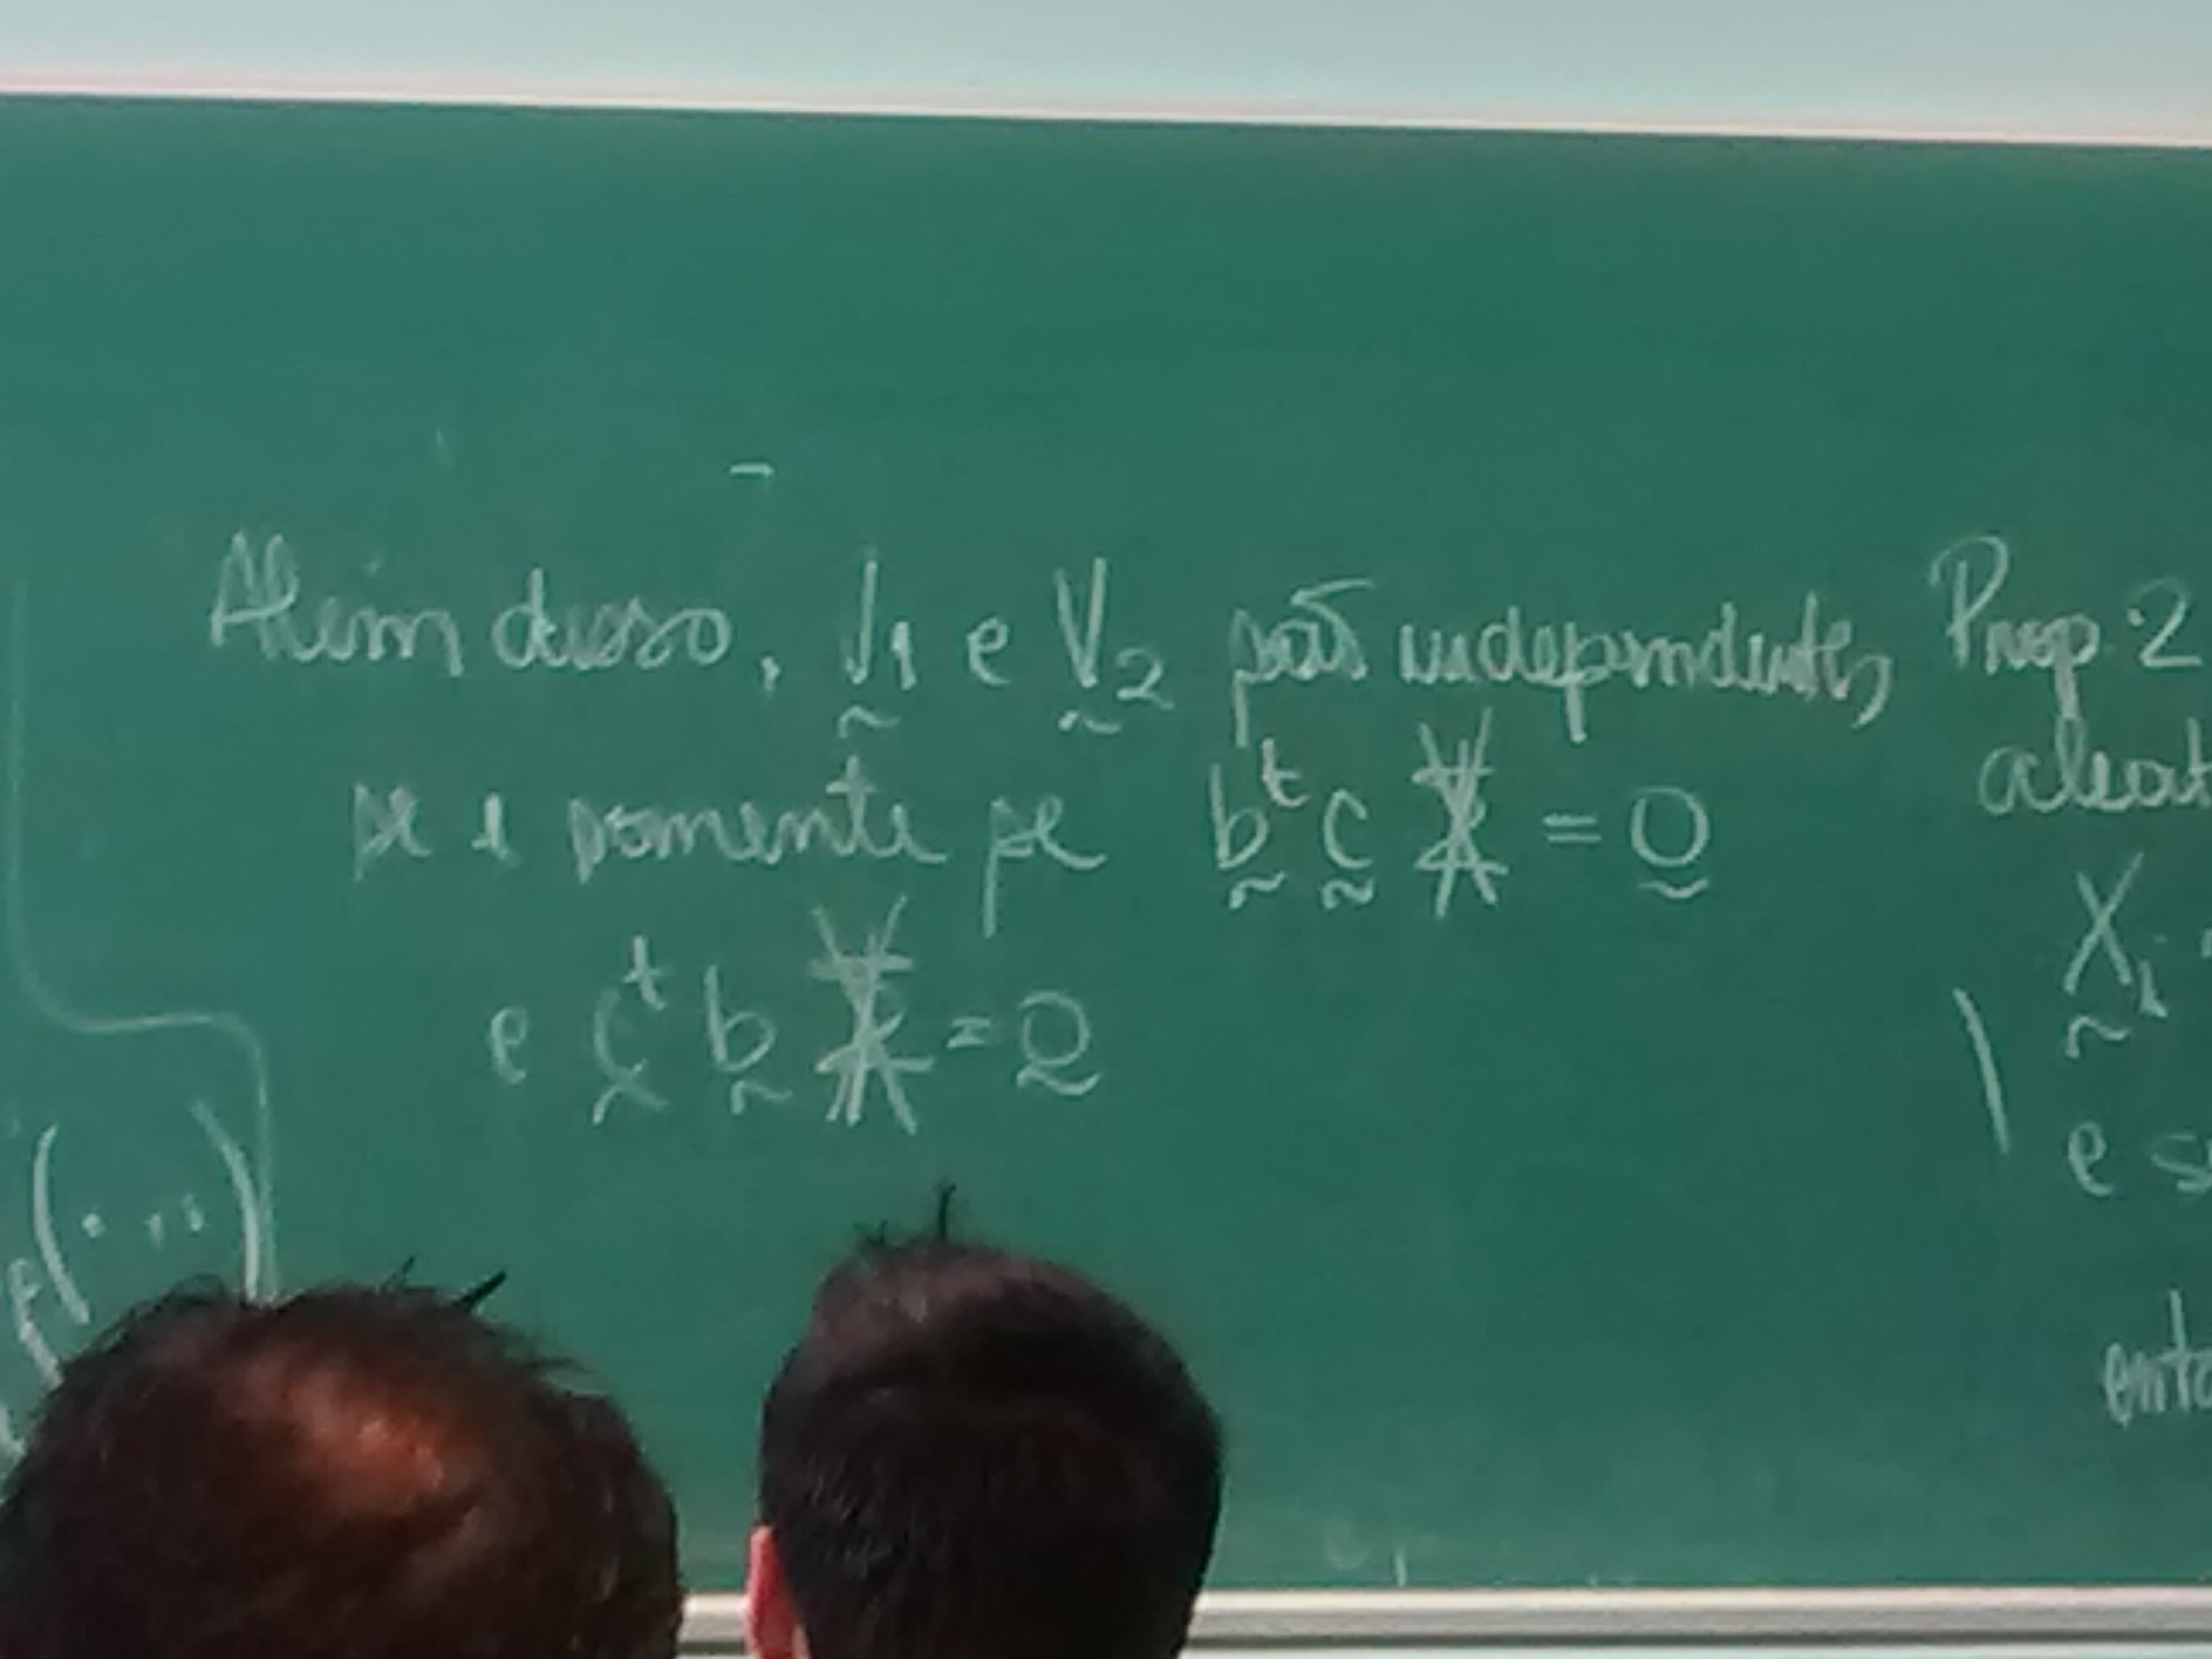 Além disso, V1 e V2 são independentes
se e somente se b^t c Σ = 0
e c^t b Σ = 0
(...)
Prop. 2
aleat
Xi
e s
ento